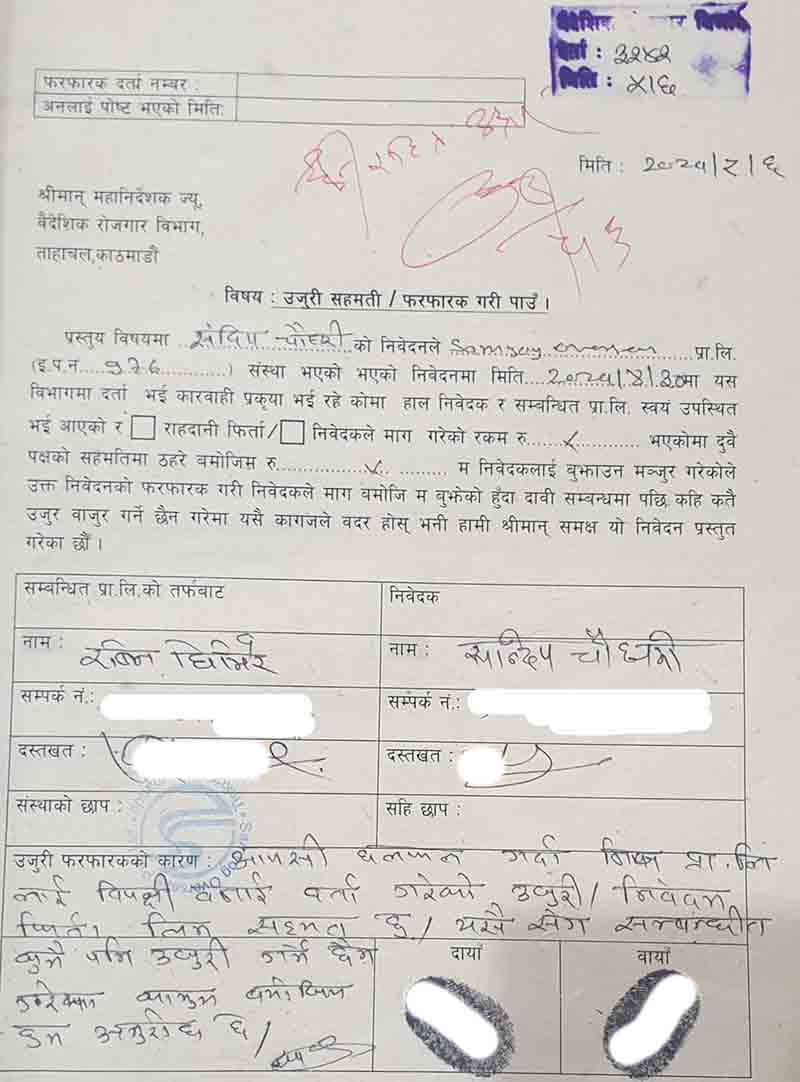 दर्ता : ३२४२
मिति : ४।६
फरफारक दर्ता नम्बर :
अनलाई पोष्ट भएको मिति:
मिति :
श्रीमान् महानिर्देशक ज्यू,
वैदेशिक रोजगार विभाग,
ताहाचल,काठमाडौ
विषय : उजुरी सहमती / फरफारक गरी पाउँ ।
प्रस्तुय विषयमा ..संदिप चौधरी..को निवेदनले ......प्रा.लि.
(इ.प.न....९७६............) संस्था भएको भएको निवेदनमा मिति......मा यस
विभागमा दर्ता भई कारवाही प्रकृया भई रहे कोमा हाल निवेदक र सम्वन्धित प्रा.लि. स्वयं उपस्थित
भई आएको र राहदानी फिर्ता/ निवेदकले माग गरेको रकम रु......x............ भएकोमा दुवै
पक्षको सहमतिमा ठहरे वमोजिम रु................x. ......... म निवेदकलाई बुझाउन मञ्जुर गरेकोले
उक्त निवेदनको फरफारक गरी निवेदकले माग वमोजि म बुझेको हुँदा दावी सम्वन्धमा पछि कहि कतै
उजुर वाजुर गर्ने छैन गरेमा यसै कागजले वदर होस् भनी हामी श्रीमान् समक्ष यो निवेदन प्रस्तुत
गरेका छौं ।
सम्वन्धित प्रा.लि.को तर्फवाट
निवेदक
नाम : रविन घिमिरे
नाम : सन्दिप चौधरी
सम्पर्क नं.:
सम्पर्क नं.:
दस्तखत :
दस्तखत :
संस्थाको छाप :
सहि छाप :
उजुरी फरफारकको कारण : आपसी छलफल गर्दा प्रा.लि
लाई विपक्षी बनाई दर्ता गरेको उजुरी/ निवेदन
फिर्ता लिन सहमत छु/ यसै संग सम्बन्धीत
कुनै पनि उजुरी गर्ने छैन
दायाँ
वायाँ
कानुन बमोजिम
हुन अनुरोध छ/